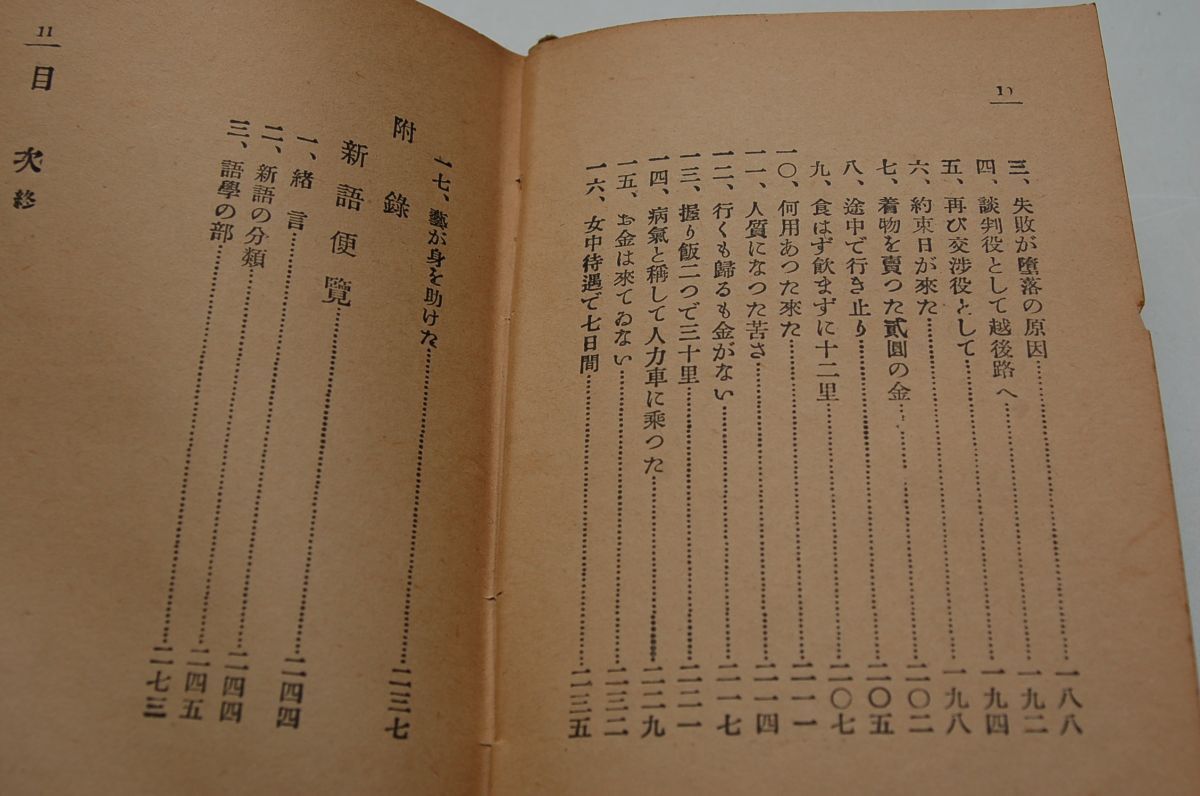 10
三、失敗が墮落の原因…………一八八
四、談判役として越後路へ…………一九二
五、再び交渉役として…………一九四
六、約束日が來た…………一九八
七、着物を賣つた貳圓の金…………二〇二
八、途中で行き止り…………二〇五
九、食はず飮まずに十二里…………二〇七
一〇、何用あつた來た…………二一一
一一、人質になつた苦さ…………二一四
一二、行くも歸るも金がない…………二一七
一三、握り飯二つで三十里…………二二一
一四、病氣と稱して人力車に乘つた…………二二九
一五、お金は來てゐない…………二三二
一六、女中待遇で七日間…………二三五
一七、藝が身を助けた…………二三七
附錄
新語便覽…………二四四
一、緒言…………二四四
二、新語の分類…………二四五
三、語學の部…………二七三
11
目次終